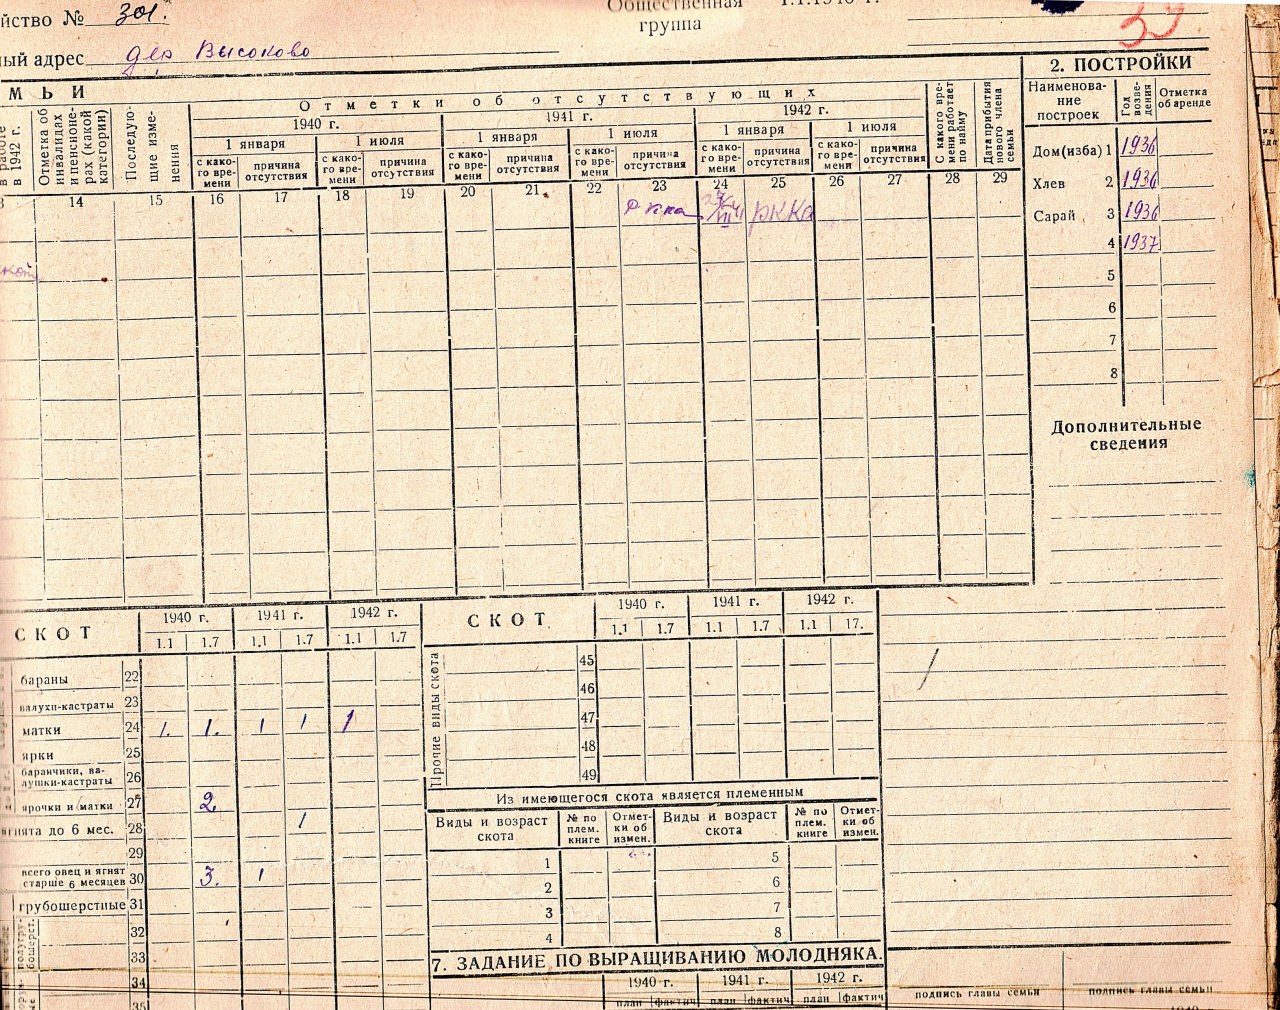 йство № 301.
Общественная 1.1.1940 г.
группа
39
ный адрес дер Высоково
МЬИ
в работе в 1942 г.
Отметка об инвалидах и пенсионерах (какой категории)
Последующие изменения
Отметки об отсутствующих
1940 г. 1941 г. 1942 г.
1 января 1 июля 1 января 1 июля 1 января 1 июля
с какого времени причина отсутствия с какого времени причина отсутствия с какого времени причина отсутствия с какого времени причина отсутствия с какого времени причина отсутствия с какого времени причина отсутствия
С какого времени работает по найму
Дата прибытия нового члена семьи
3 14 15 16 17 18 19 20 21 22 23 24 25 26 27 28 29
Ркка РККА
2. ПОСТРОЙКИ
Наименование построек Год возведения Отметка об аренде
Дом(изба) 1 1936
Хлев 2 1936
Сарай 3 1936
4 1937
5
6
7
8
Дополнительные
сведения
СКОТ 1940 г. 1941 г. 1942 г.
1.1 1.7 1.1 1.7 1.1 1.7
бараны 22
валухи-кастраты 23
матки 24 1. 1. 1 1 1
ярки 25
баранчики, ва-
лушки-кастраты 26
ярочки и матки 27 2.
ягнята до 6 мес. 28 1
29
всего овец и ягнят
старше 6 месяцев 30 3. 1
грубошерстные 31
полугру-
бошерст.
32
33
34
35
СКОТ 1940 г. 1941 г. 1942 г.
1.1 1.7 1.1 1.7 1.1 17.
Прочие виды скота
45
46
47
48
49
Из имеющегося скота является племенным
Виды и возраст скота № по плем. книге Отметки об измен. Виды и возраст скота № по плем. книге Отметки об измен.
1 5
2 6
3 7
4 8
7. ЗАДАНИЕ ПО ВЫРАЩИВАНИЮ МОЛОДНЯКА.
1940 г. 1941 г. 1942 г.
план фактич план фактич план фактич
подпись главы семьи подпись главы семьи